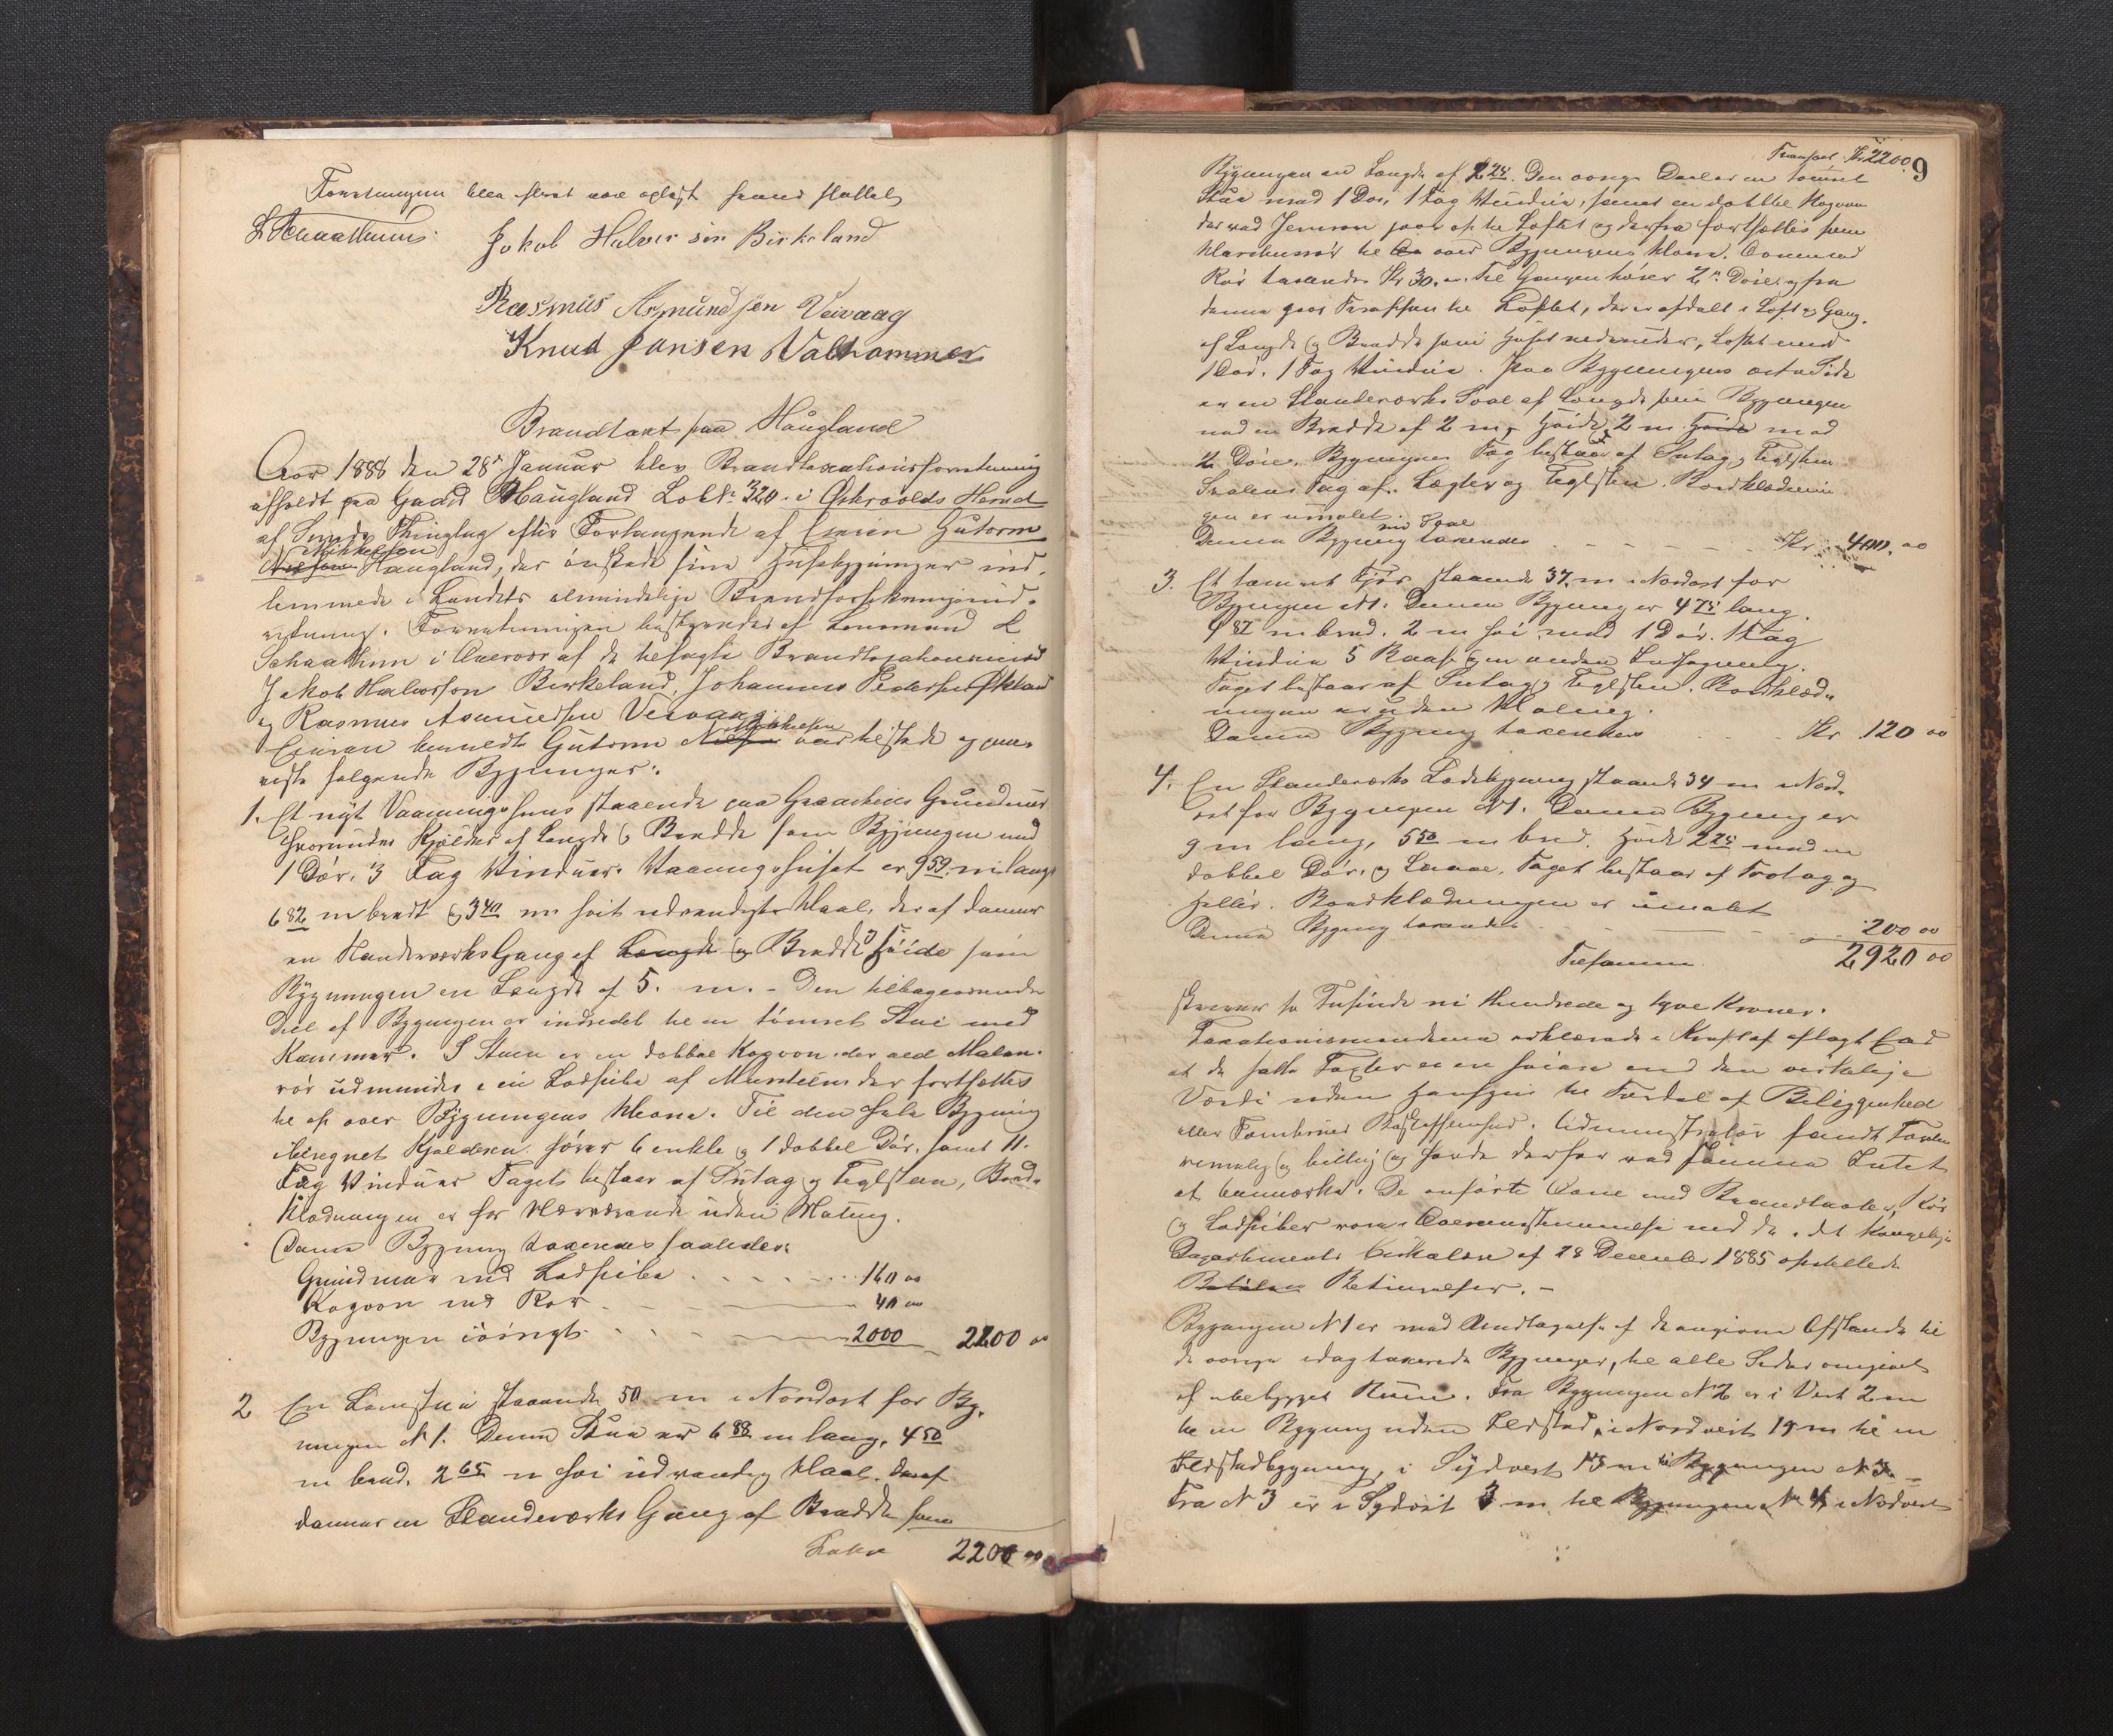 Forretningen blev derest oplæst
L Schaathuun.
Jakob Halversøn Birkeland
Rasmus Asmundsen Veivaag
Knud Jansen Valhammer
Brandtaxt paa Haugland
Aar 1888 den 28de Januar blev Brandtaxationsforretning
afholdt paa Gaard Haugland LobNr 320 i Herred
af Thinglag efter Forlangende af Eieren Gutorm
Mikkelsen
Nilsen Haugland, der ønskede sine Husebygninger ind-
lemmede i Landets almindelige Brandforsikringsind-
retning. Forretningen bestyredes af Lensmand L
Schaathun i Overvær af de Brandtaxationsmænd
Jakob Halvorsen Birkeland, Johannes Pedersen Økland
og Rasmus Asmundsen Veivaag
Mikkelsen
Eieren benævnte Gutorm Nilsen var tilstede og paa-
viste følgende Bygninger:
1. Et nyt Vaaningshus staaende paa Graasteens Grundmur
hvorunder Kjelder af Længde og Bredde som Bygningen med
1 Dør, 3 Fag Vinduer. Vaaningshuset er 9 59 m langt
6 82 m bredt og 3 40 m høit udvendigt Maal, deraf danner
en StanderværksGang af Længde og Bredde og Høide som
Bygningen en Længde af 5. m. - Den tilbageværende
Deel af Bygningen er indredet til en tømret Stue med
Kammer. I Stuen er en dobbel Kogovn der ved Malm-
rør udmunder i en Ladpibe af Muursteen der fortsættes
til op over Bygningens Møne. Til den hele Bygning
iberegnet Kjelderen hører 6 enkle og 1 dobbel Dør, samt 11
Fag Vinduer Taget bestaar af Sutag og Teglsteen, Bord-
klædningen er for Nærværende uden Maling.
Denne Bygning taxeredes saaledes:
Grundmur med Ladpibe . . . . . . 160 00
Kogovn med Rør 40 00
Bygningen iøvrigt 2000 2200 00
2 En staaende 50 m i Nordost for Byg-
ningen N 1. Denne Stue er 6 88 m lang, 4 50
m bred, 2 65 m høi udvendig Maal. Deraf
danner en Standerværks Gang af Bredde som
Latus 2200 00
Transport Kr 2200 9
Bygningen en Længde af 2 25. Den øvrige Deel er en tømret
Stue med 1 Dør, 1 Fag Vinduer, samt en dobbel Kogovn
der ved Jernrør gaar op til Loftet og derfra fortsættes som
til over Bygningens Møne. Ovnen med
Rør taxeredes Kr 30. Til Gangen hører 2 Døre og fra
denne gaar Trappen til Loftet, der er afdelt i Loft og Gang,
af Længde og Bredde som Huset nedenunder, Loftet med
1 Dør, 1 Fag Vinduer. Paa Bygningens østre Side
er en Standerværks Sval af Længde som Bygningen
med en Bredde af 2 m, Høide 2 m Høide med
2 Døre. Bygningens Tag bestaar af Sutag og Teglsteen
Svalens Tag af Lægter og Teglsten. Bordklædnin-
gen er umalet.
med Sval
Denne Bygning taxeredes Kr 400. 00
3. Et tømret Fjøs staaende 37. m i Nordost for
Bygningen N 1. Denne Bygning er 4 75 lang,
4 82 m bred, 2 m høi med 1 Dør, 1 Fag
Vinduer 5 Baase og en anden Indhegning.
Taget bestaar af Sutag og Teglsten. Bordklæd-
ningen er uden Maling.
Denne Bygning taxeredes Kr 120 00
4. En Standerværks Ladebygning staaende 34 m i Nord-
ost for Bygningen N 1. Denne Bygning er
9 m lang, 5 50 m bred, Høide 2 25 med en
dobbel Dør og Laave. Taget bestaar af Trotag og
Heller. Bordklædningen er umalet
Denne Bygning taxeredes 200 00
Tilsammen 2920 00
skriver to Tusinde ni Hundrede og tyve Kroner.
Taxationsmændene erklærede i Kraft af aflagt Eed
at de satte Taxter er en høiere end den virkelige
Værdi uden Hensyn til Fordel af Beliggenhed
eller Tomternes Beskaffenhed. Administrator fandt Taxten
rimelig og billig og havde derfor ved samme Intet
at bemærke. De anførte Ovne med Brandtavler, Rør
og Ladpiber vare i Overensstemmelse med de i det kongelige
Departements Cirkulære af 28 December 1885 opstillede
Betingelser. -
Bygningen N 1 er med Undtagelse af de angivne Afstande til
de øvrige idag taxerede Bygninger, til alle Sider omgivet
af ubebygget Rum. Fra Bygningen N 2 er i Vest 2 m
til en Bygning uden Ildsted, i Nordvest 19 m til en
Ildstedbygning, i Sydvest 13 m til Bygningen N 3. -
Fra N 3 er i Sydvest 3 m til Bygningen N 4 i Nordvest